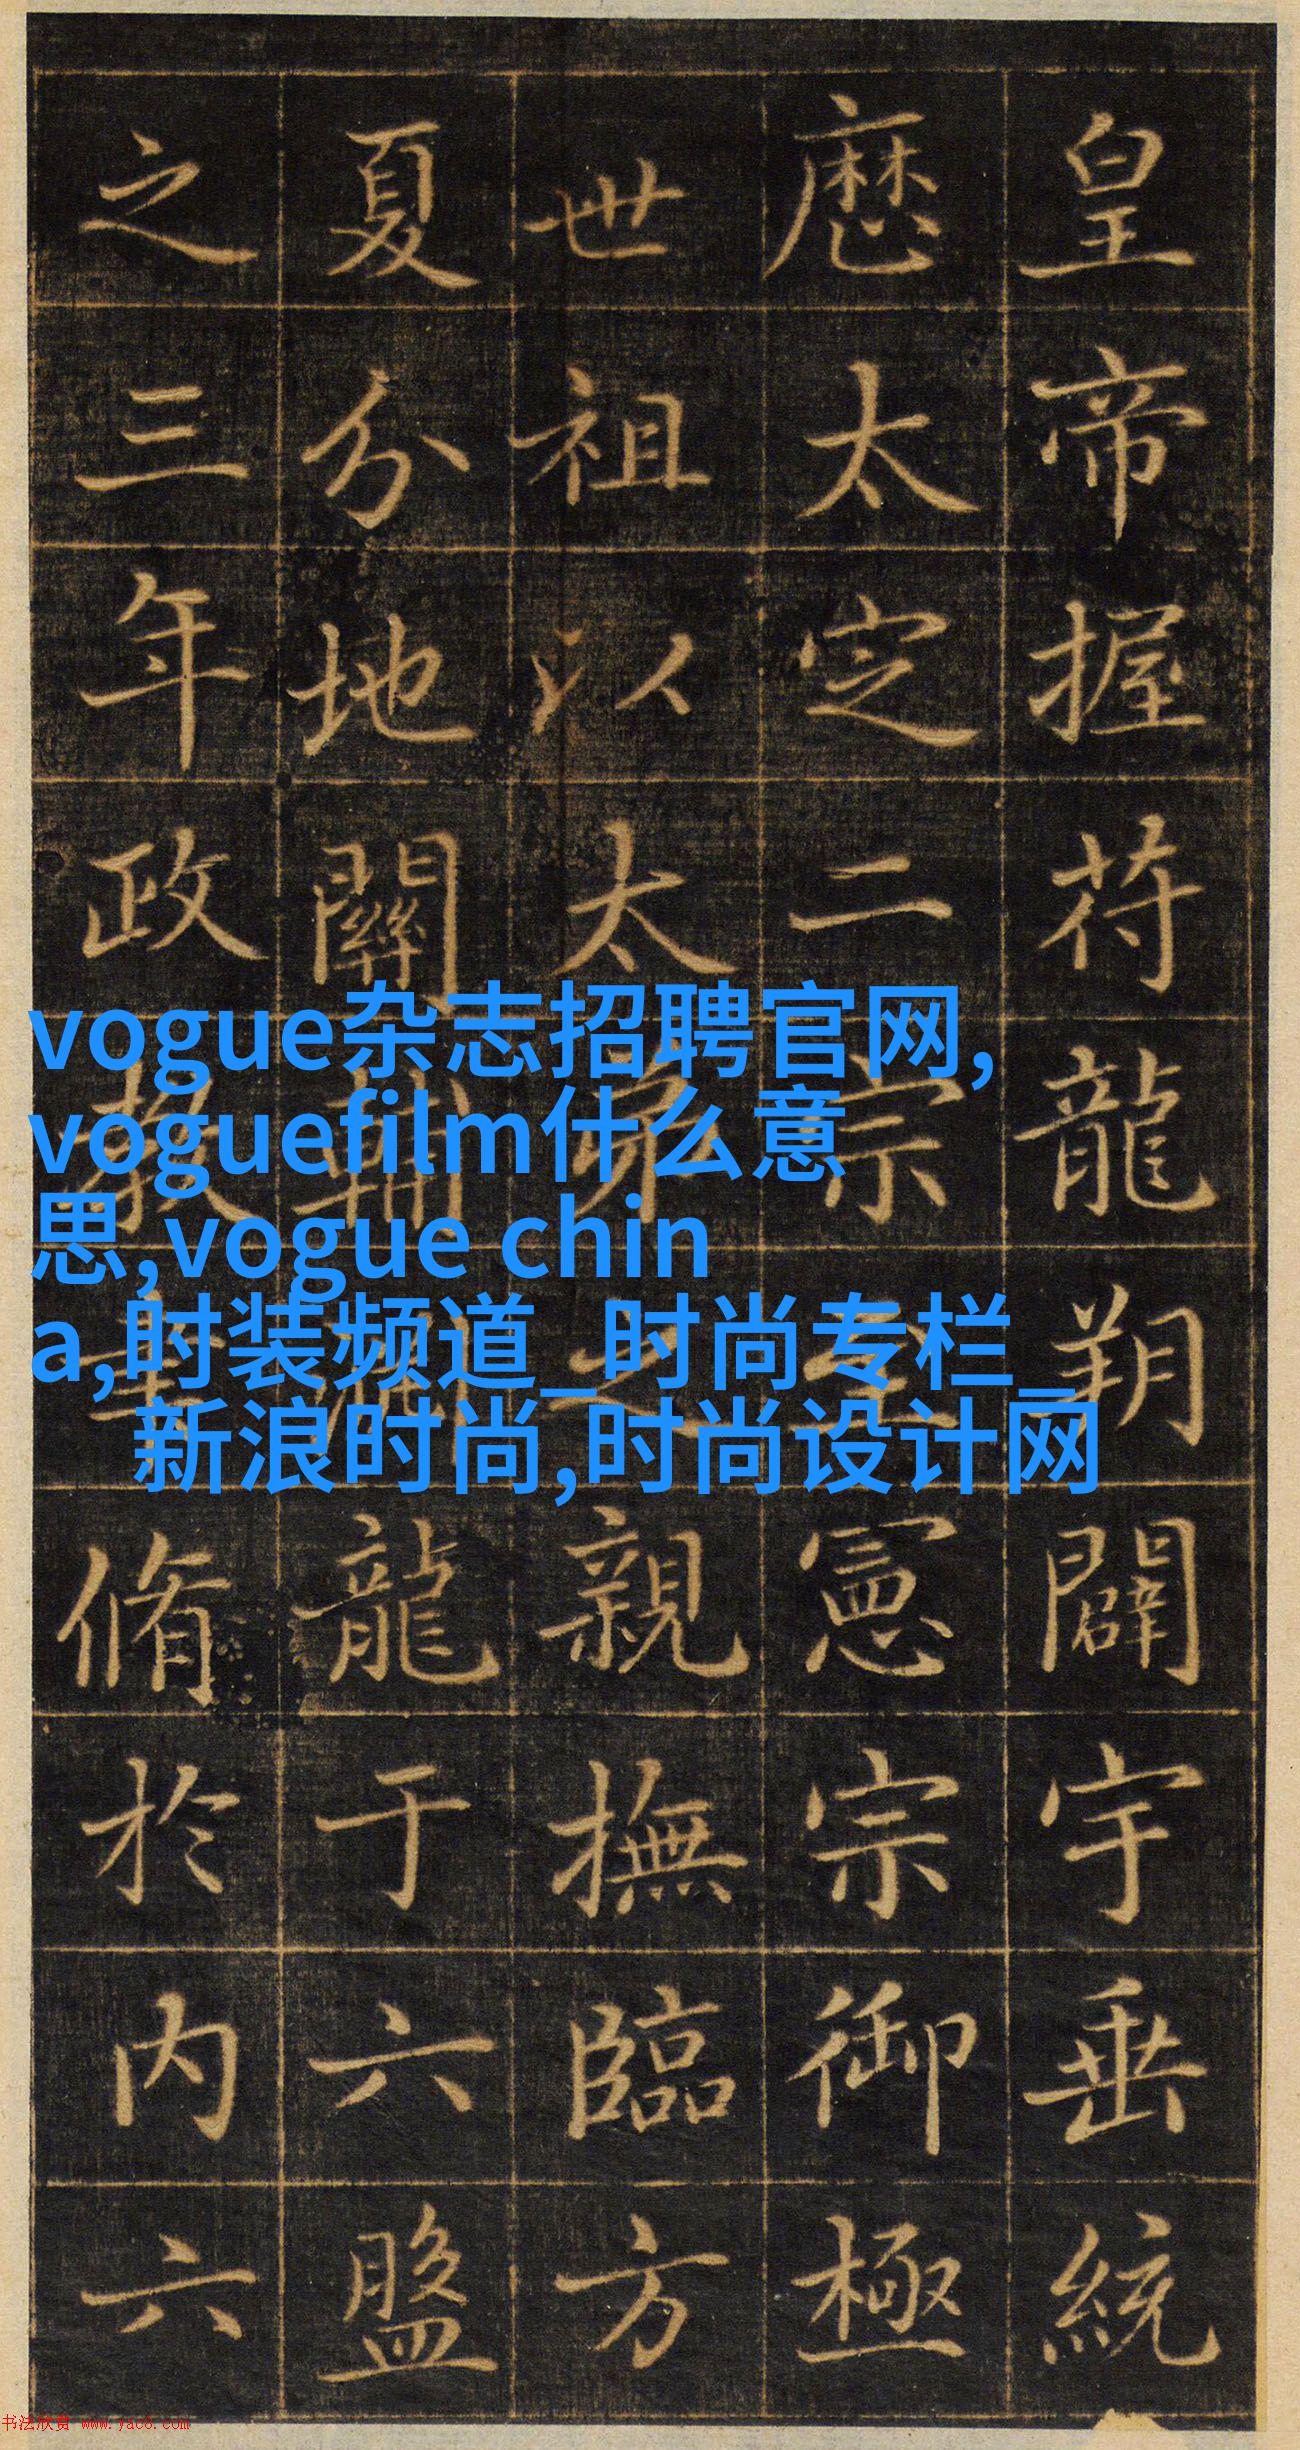 皇帝握苻龍朔闢宇垂統
厯太定二宗憲宗御極
世祖以太弟之親撫臨方
夏分地關龍于六盤
之三年政教脩於内六
vogue杂志招聘官网,
voguefilm什么意
思,vogue chin
a,时装频道_时尚专栏_
新浪时尚,时尚设计网
书法欣赏 www.yac8.com